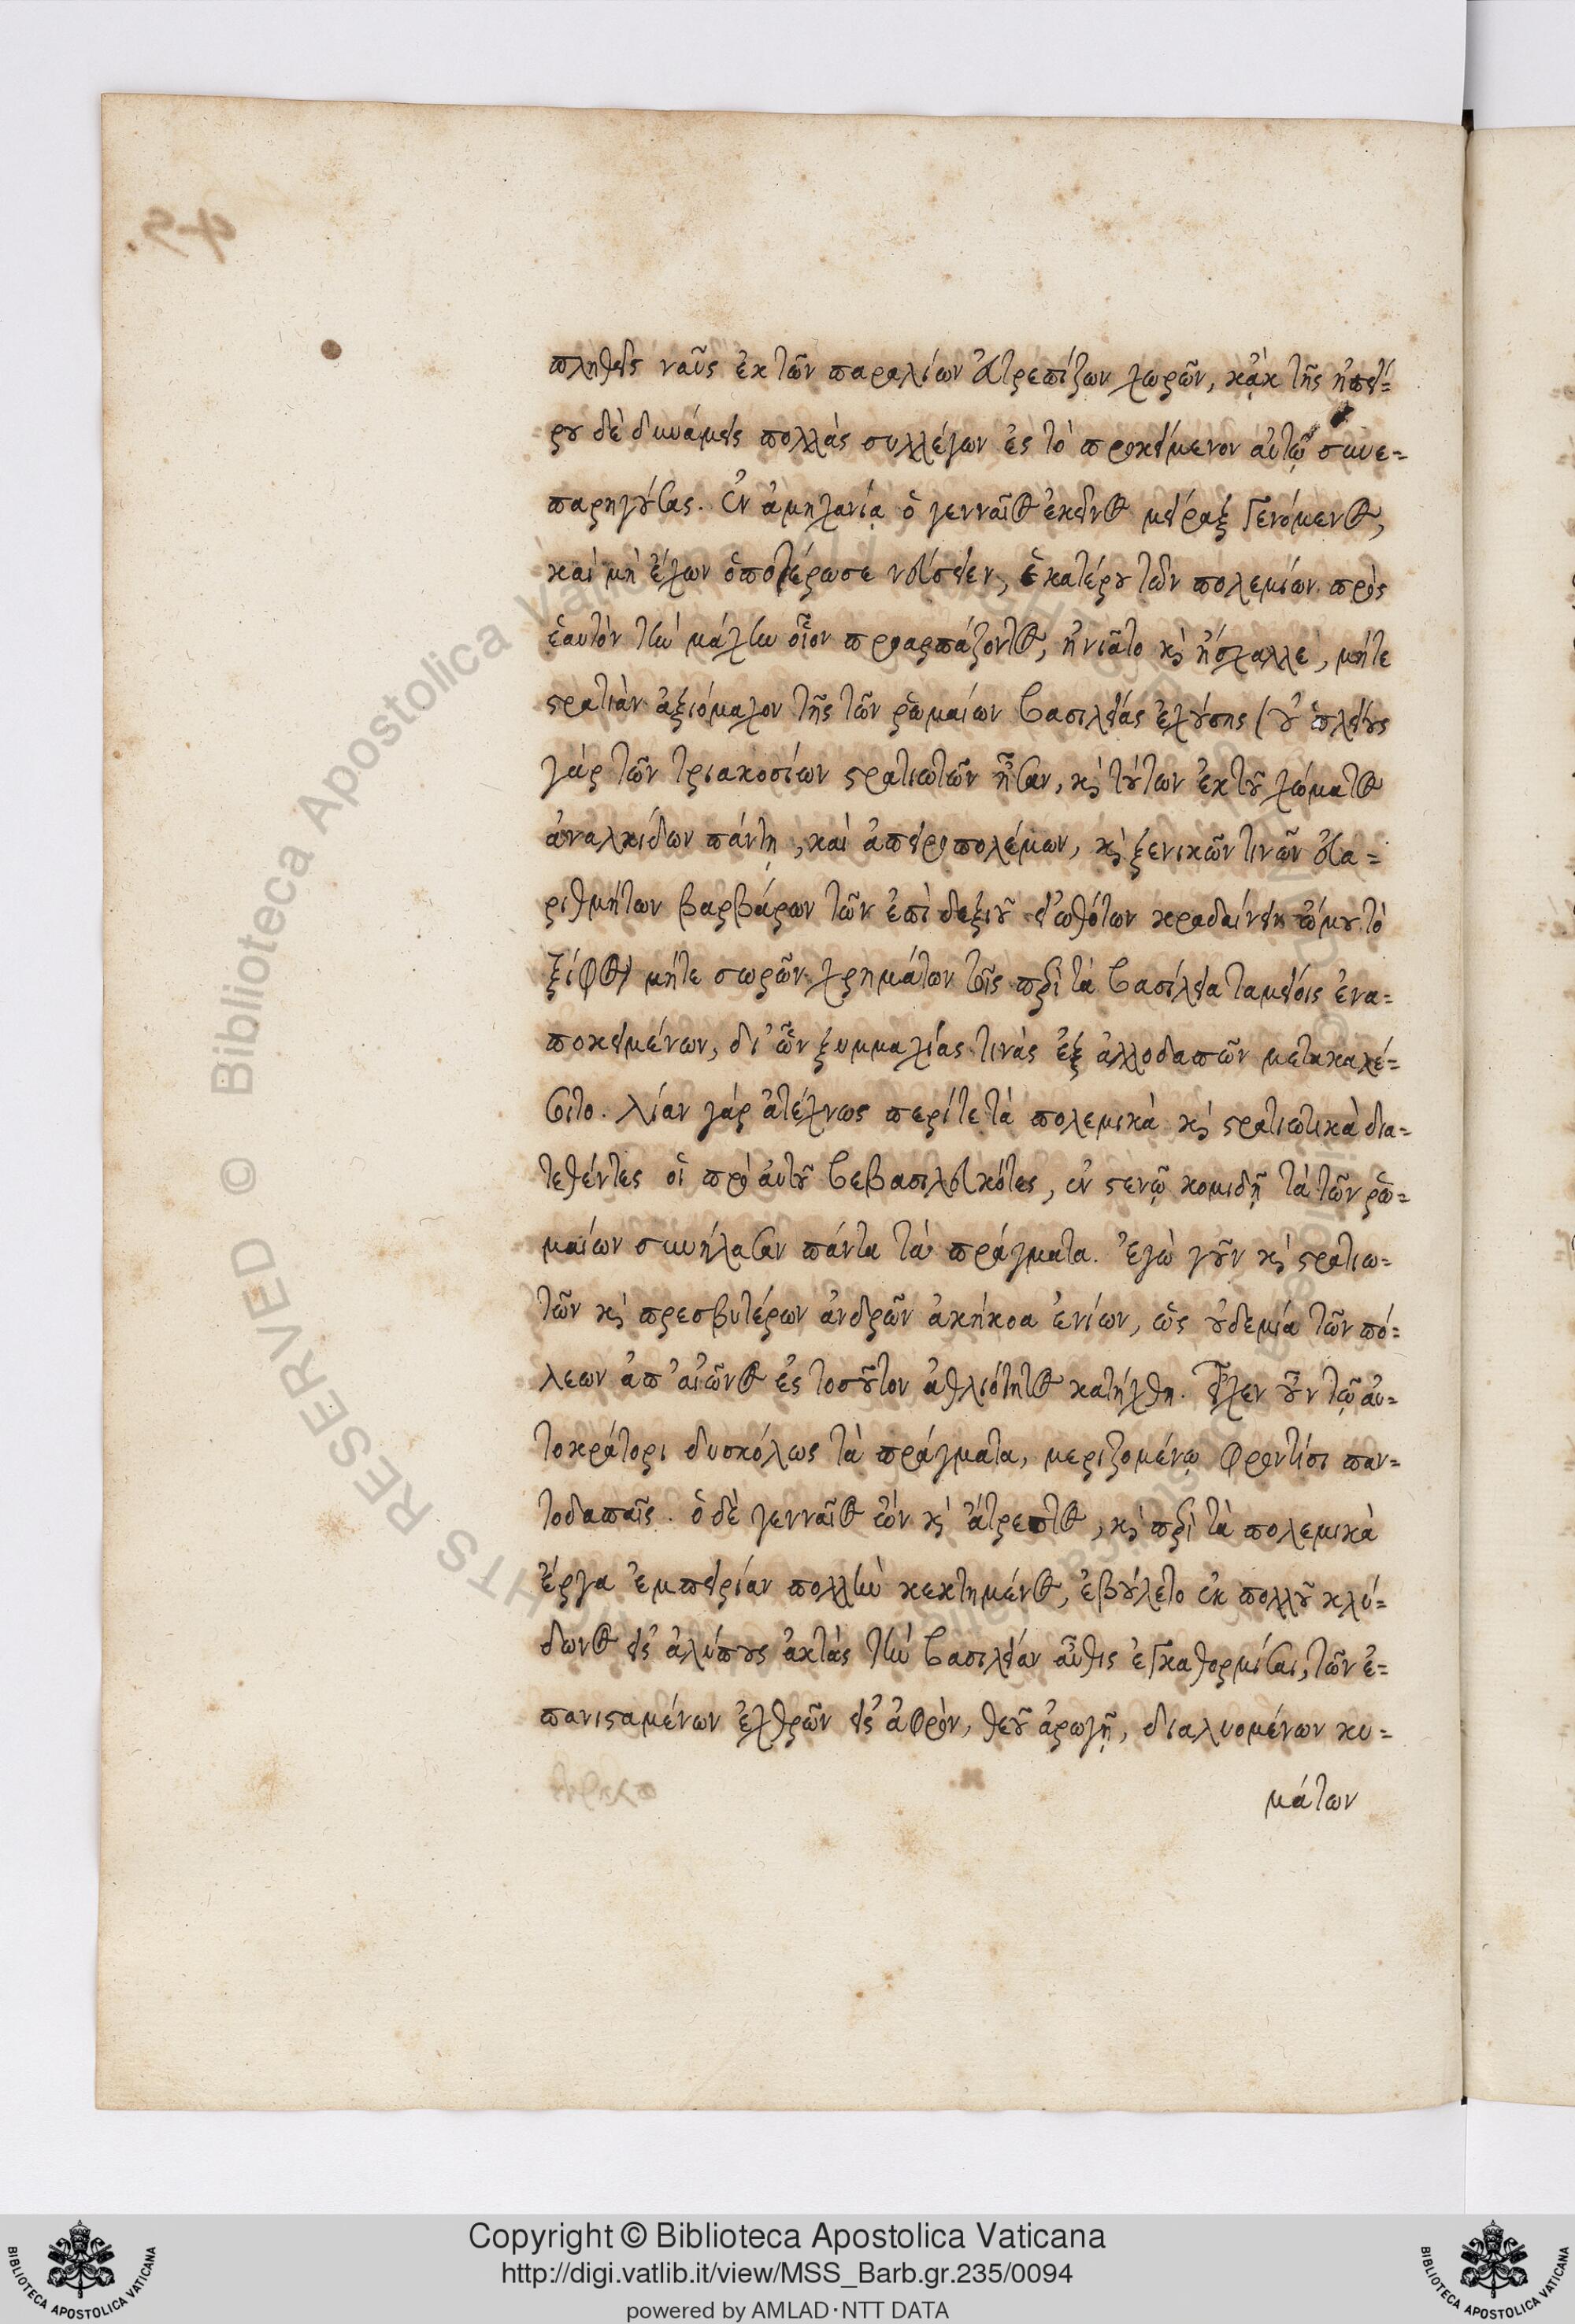 πληθεῖς ναῦς ἐκ τῶν παραλίων εὐτρεπίζων χωρῶν, κἀκ τῆς ἠπεί=
ρου δὲ δυνάμεις πολλὰς συλλέγων ἐς τὸ προκείμενον αὐτῷ συνε=
παρηγούσας. Ἐν ἀμηχανίᾳ ὁ γενναῖος ἐκεῖνος μεῖραξ γενόμενος,
καὶ μὴ ἔχων ὁποτέρωσε νεύσειεν, ἑκατέρου τῶν πολεμίων πρὸς
ἑαυτὸν τὴν μάχην οἷον προαρπάζοντος, ἠνιᾶτο καὶ ἤσχαλλε, μήτε
στρατιὰν ἀξιόμαχον τῆς τῶν ῥωμαίων βασιλείας ἐχούσης (οὐ πλείους
γὰρ τῶν τριακοσίων στρατιωτῶν ἦσαν, καὶ τούτων ἐκ τοῦ χώματος
ἀναλκίδων πάντῃ, καὶ ἀπειροπολέμων, καὶ ξενικῶν τινῶν εὐα=
ριθμήτων βαρβάρων τῶν ἐπὶ δεξιοῦ εἰωθότων κραδαίνειν ὤμου τὸ
ξίφος) μήτε σωρῶν χρημάτων τοῖς περὶ τὰ βασίλεια ταμείοις ἐνα=
ποκειμένων, δι' ὧν ξυμμαχίας τινὰς ἐξ ἀλλοδαπῶν μετακαλέ=
σοιτο. λίαν γὰρ ἀτέχνως περί τε τὰ πολεμικὰ καὶ στρατιωτικὰ δια=
τεθέντες οἱ πρὸ αὐτοῦ βεβασιλευκότες, ἐν στενῷ κομιδῇ τὰ τῶν ῥω=
μαίων συνήλασαν πάντα τὰ πράγματα. Ἐγὼ γοῦν καὶ στρατιω=
τῶν καὶ πρεσβυτέρων ἀνδρῶν ἀκήκοα ἐνίων, ὡς οὐδεμία τῶν πό=
λεων ἀπ' αἰῶνος ἐς τοσοῦτον ἀθλιότητος κατήχθη. Εἶχεν οὖν τῷ αὐ=
τοκράτορι δυσκόλως τὰ πράγματα, μεριζομένῳ φροντίσι παν=
τοδαπαῖς. ὁ δὲ γενναῖος ὢν καὶ ἄτρεπτος, καὶ περὶ τὰ πολεμικὰ
ἔργα ἐμπειρίαν πολλὴν κεκτημένος, ἐβούλετο ἐκ πολλοῦ κλύ=
δωνος εἰς ἀλύπους ἀκτὰς τὴν βασιλείαν αὖθις ἐγκαθορμίσαι, τῶν ἐ=
πανισταμένων ἐχθρῶν εἰς ἀφρὸν, θεοῦ ἀρωγῇ, διαλυομένων κυ=
μάτων
Copyright © Biblioteca Apostolica Vaticana
http://digi.vatlib.it/view/MSS_Barb.gr.235/0094
powered by AMLAD·NTT DATA